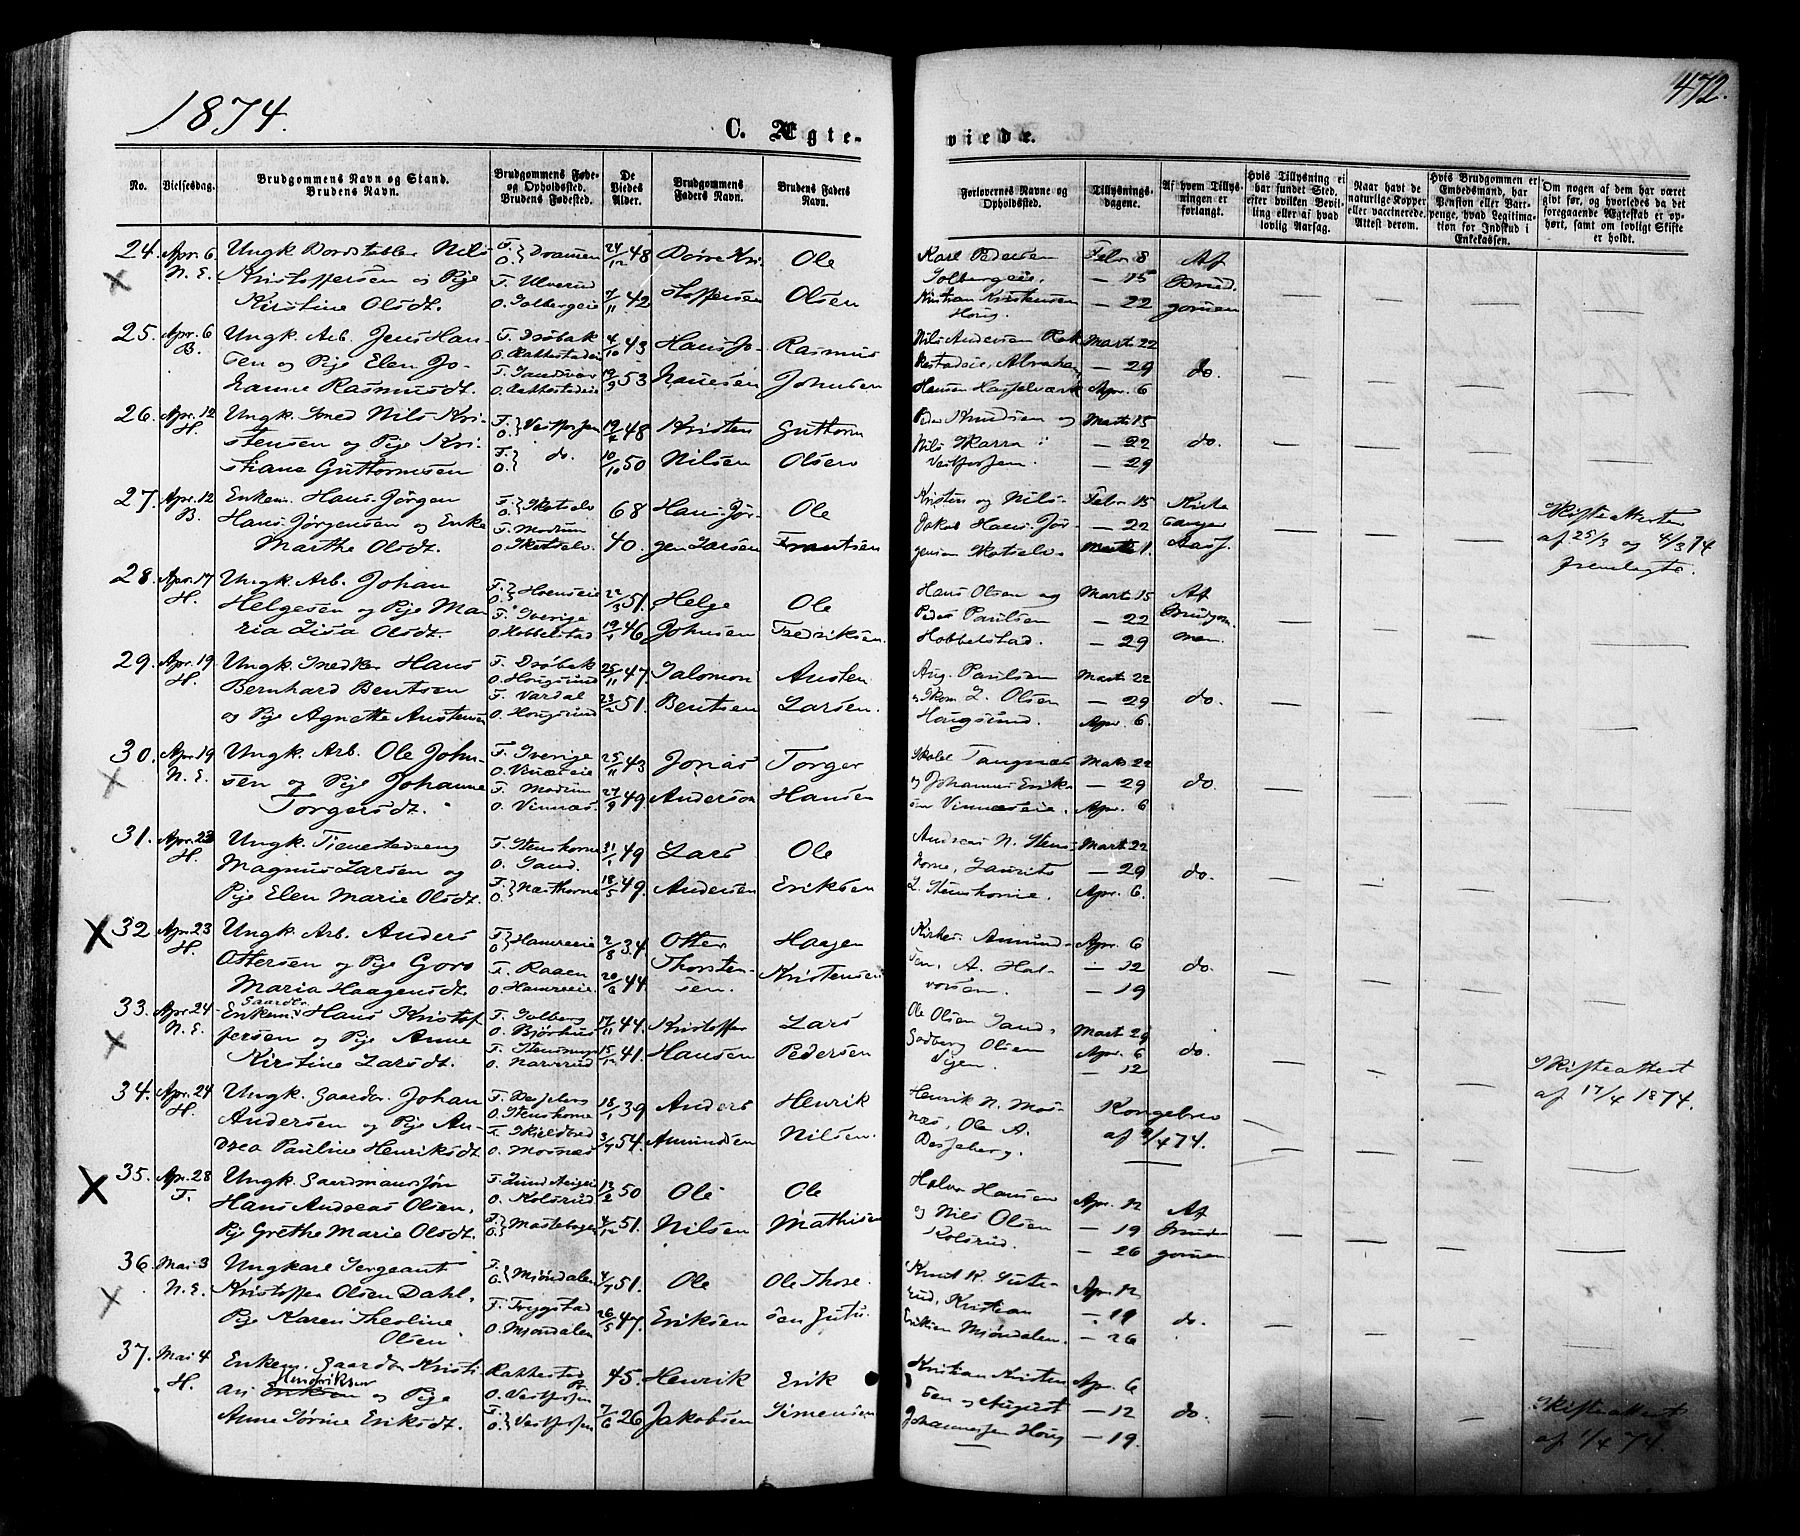 1874.
472.
C. Ægte-
viede.
No.
Vielsesdag.
Brudgommens Navn og Stand.
Brudens Navn.
Brudgommens Føde-
og Opholdssted.
Brudens Fødested.
De
Viedes
Alder.
Brudgommens
Faders Navn.
Brudens Faders
Navn.
Forlovernes Navne og
Opholdssted.
Tillysnings-
dagene.
Af hvem Tillys-
ningen er
forlangt.
Hvis Tillysning ei
har fundet Sted,
efter hvilken Bevil-
ling eller af hvad
lovlig Aarsag.
Naar havt de
naturlige Kopper
eller vaccinerede.
Attest derom.
Hvis Brudgommen er
Embedsmand, har
Pension eller Vart-
penge, hvad Legitima-
tion for Indskud i
Enkekassen.
Om nogen af dem har været
gift før, og hvorledes da det
foregaaende Ægteskab er op-
hørt, samt om lovligt Skifte
er holdt.
24. Apr. 6 Ungk. Nils F. } Dramen 24/12 48 Kri- Ole Karl Pedersen Febr. 8 Af
N. E. Kristoffersen og Pige F. Ulverud stoffersen Olsen Solbergeie, — 15 Brud-
Kirstine Olsdt. O. Solbergeie 7/11 42 Kristian Kristensen — 22 gommen
Houg.
25. Apr. 6 Ungk. Arb. Jens Han- F. Drøbak 4/10 43 Hans Jo- Rasmus Nils Andersen Rak- Marts 22
B. sen og Pige Elen Jo- O. Rakkestadeie — 29 do.
hanne Rasmusdt. O. Rakkestadeie 19/9 53 hannesen Johnsen Hansen Hasselværk Apr. 6
26. Apr. 12 Ungk. Smed Nils Kri- F. } Vestfossen 48 Kristen Guttorm Peder Knudsen og Marts 15
H. stensen og Pige Kri- O. Nils Skarra i — 22 do.
stiane Guttormsen F. } do. 10/10 50 Nilsen Olsen Vestfossen. — 29
27. Apr. 12 Enkem. Hans Jørgen F. } Skotselv 68 Hans Jør- Ole Kristen og Nils Febr. 15
B. Hans Jørgensen og Enke F. Modum Jakob Hans Jør- — 22
Marthe Olsdt. O. Skotselv. 40. gen Larsen Frantsen gensen Skotselv. Marts 1. Skifteattester
af 25/3 og 4/3 74
fremlagte.
28. Apr. 17 Ungk. Arb. Johan F. } Hoenseie 22/3 51. Helge Ole Hans Olsen og Marts 15 Af
H. Helgesen og Pige Ma- F. Sverige Peder Paulsen — 22 Brudgom-
ria Lisa Olsdt. O. Hobbelstad 19/1 46 Johnsen Fredriksen. Hobbelstad. — 29 men
29. Apr. 19 Ungk. Snedker Hans F. Drøbak 25/11 47. Salomon Austen Aug. Paulsen Marts 22
H. Bernhard Bentsen O. Hougsund og Skom. L. Olsen — 29 do.
og Pige Agnette Austensen F. Vardal O. Hougsund 23/2 51. Bentsen Larsen. Hougsund. Apr. 6.
30. Apr. 19 Ungk. Arb. Ole John- F. Sverige 25/11 43 Jonas Torger Tangnæs Marts 22
N. E. sen og Pige Johanne O. Vinnæseie og Johannes Erik- — 29 do.
Torgersdt. F. Modum O. Vinnæs. 27/9 49. Anderson Hansen sen Vinnæseie. Apr. 6
31. Apr. 23 Ungk. Tienestedreng F. Stenshorne 31/1 49 Lars Ole Andreas N. Stens- Marts 22
H. Magnus Larsen og O. Sand. horne, Laurits — 29 do.
Pige Elen Marie Olsdt. F. } Næsthorne 18/5 49. Andersen Eriksen L. Stenshorne. Apr. 6.
32. Apr. 23 Ungk. Arb. Anders F. } Hamreeie 2/8 34. Otter Haagen Amund- Apr. 6
H. Ottersen og Pige Goro F. Raaen Thorsten- Kristensen sen, A. Hal- — 12 do.
Maria Haagensdt. O. Hamreeie. 20/6 44. sen. vorsen. — 19
33. Apr. 24 Enkem. Gaardbr. Hans Kristof- F. Solberg 17/11 44. Kristoffer Lars Ole Olsen Sand, Marts 29
N. E. fersen og Pige Anne O. Bjørhus Gudberg Olsen Apr. 6 do.
Kirstine Larsdt. O. Narverud 15/12 41. Hansen Pedersen — 12 Skifteattest
af 17/4 1874.
34. Apr. 24 Ungk. Gaardbr. Johan F. Besseberg 18/1 39 Anders Henrik Henrik N. Mos- Kongebrev
H. Andersen og Pige An- O. Stenshorne næs, Ole A. af 9/4 74.
drea Pauline Henriksdt. F. Skjeldbred O. Mosnæs 3/7 54. Amundsen Nilsen. Besseberg.
35. Apr. 28 Ungk. Gaardmanssøn O. Kolsrud 13/2 50 Ole Ole Halvor Hansen Apr. 12
F. Hans Andreas Olsen, og Nils Olsen — 19 Af Brud-
Pige Grethe Marie Olsdt. F. } Mastebogen 4/12 51. Nilsen Mathisen Kolsrud. — 26 gommen
36. Mai 3 Ungkarl Sergeant F. } Mjøndalen 4/7 51. Ole Ole Thore- Knud K. Apr. 12
N. E. Kristoffer Olsen Dahl. F. Trygstad Kristian — 19 do.
Pige Karen Theoline O. Mjøndalen 26/5 47. Eriksen sen Eriksen Mjøndalen. — 26
Olsen
37. Mai 4 Enkem. Gaardbr. Kristi- Rakkestad 45. Henrik Erik Kristian Kristen- Apr. 6
H. an Hendriksen og Pige O. Vestfossen sen og August — 12 do.
Anne Sørine Eriksdt. F. } Vestfossen 7/6 26 Jakobsen Simensen Johannessen Houg — 19. Skifteattest
af 1/4 74.